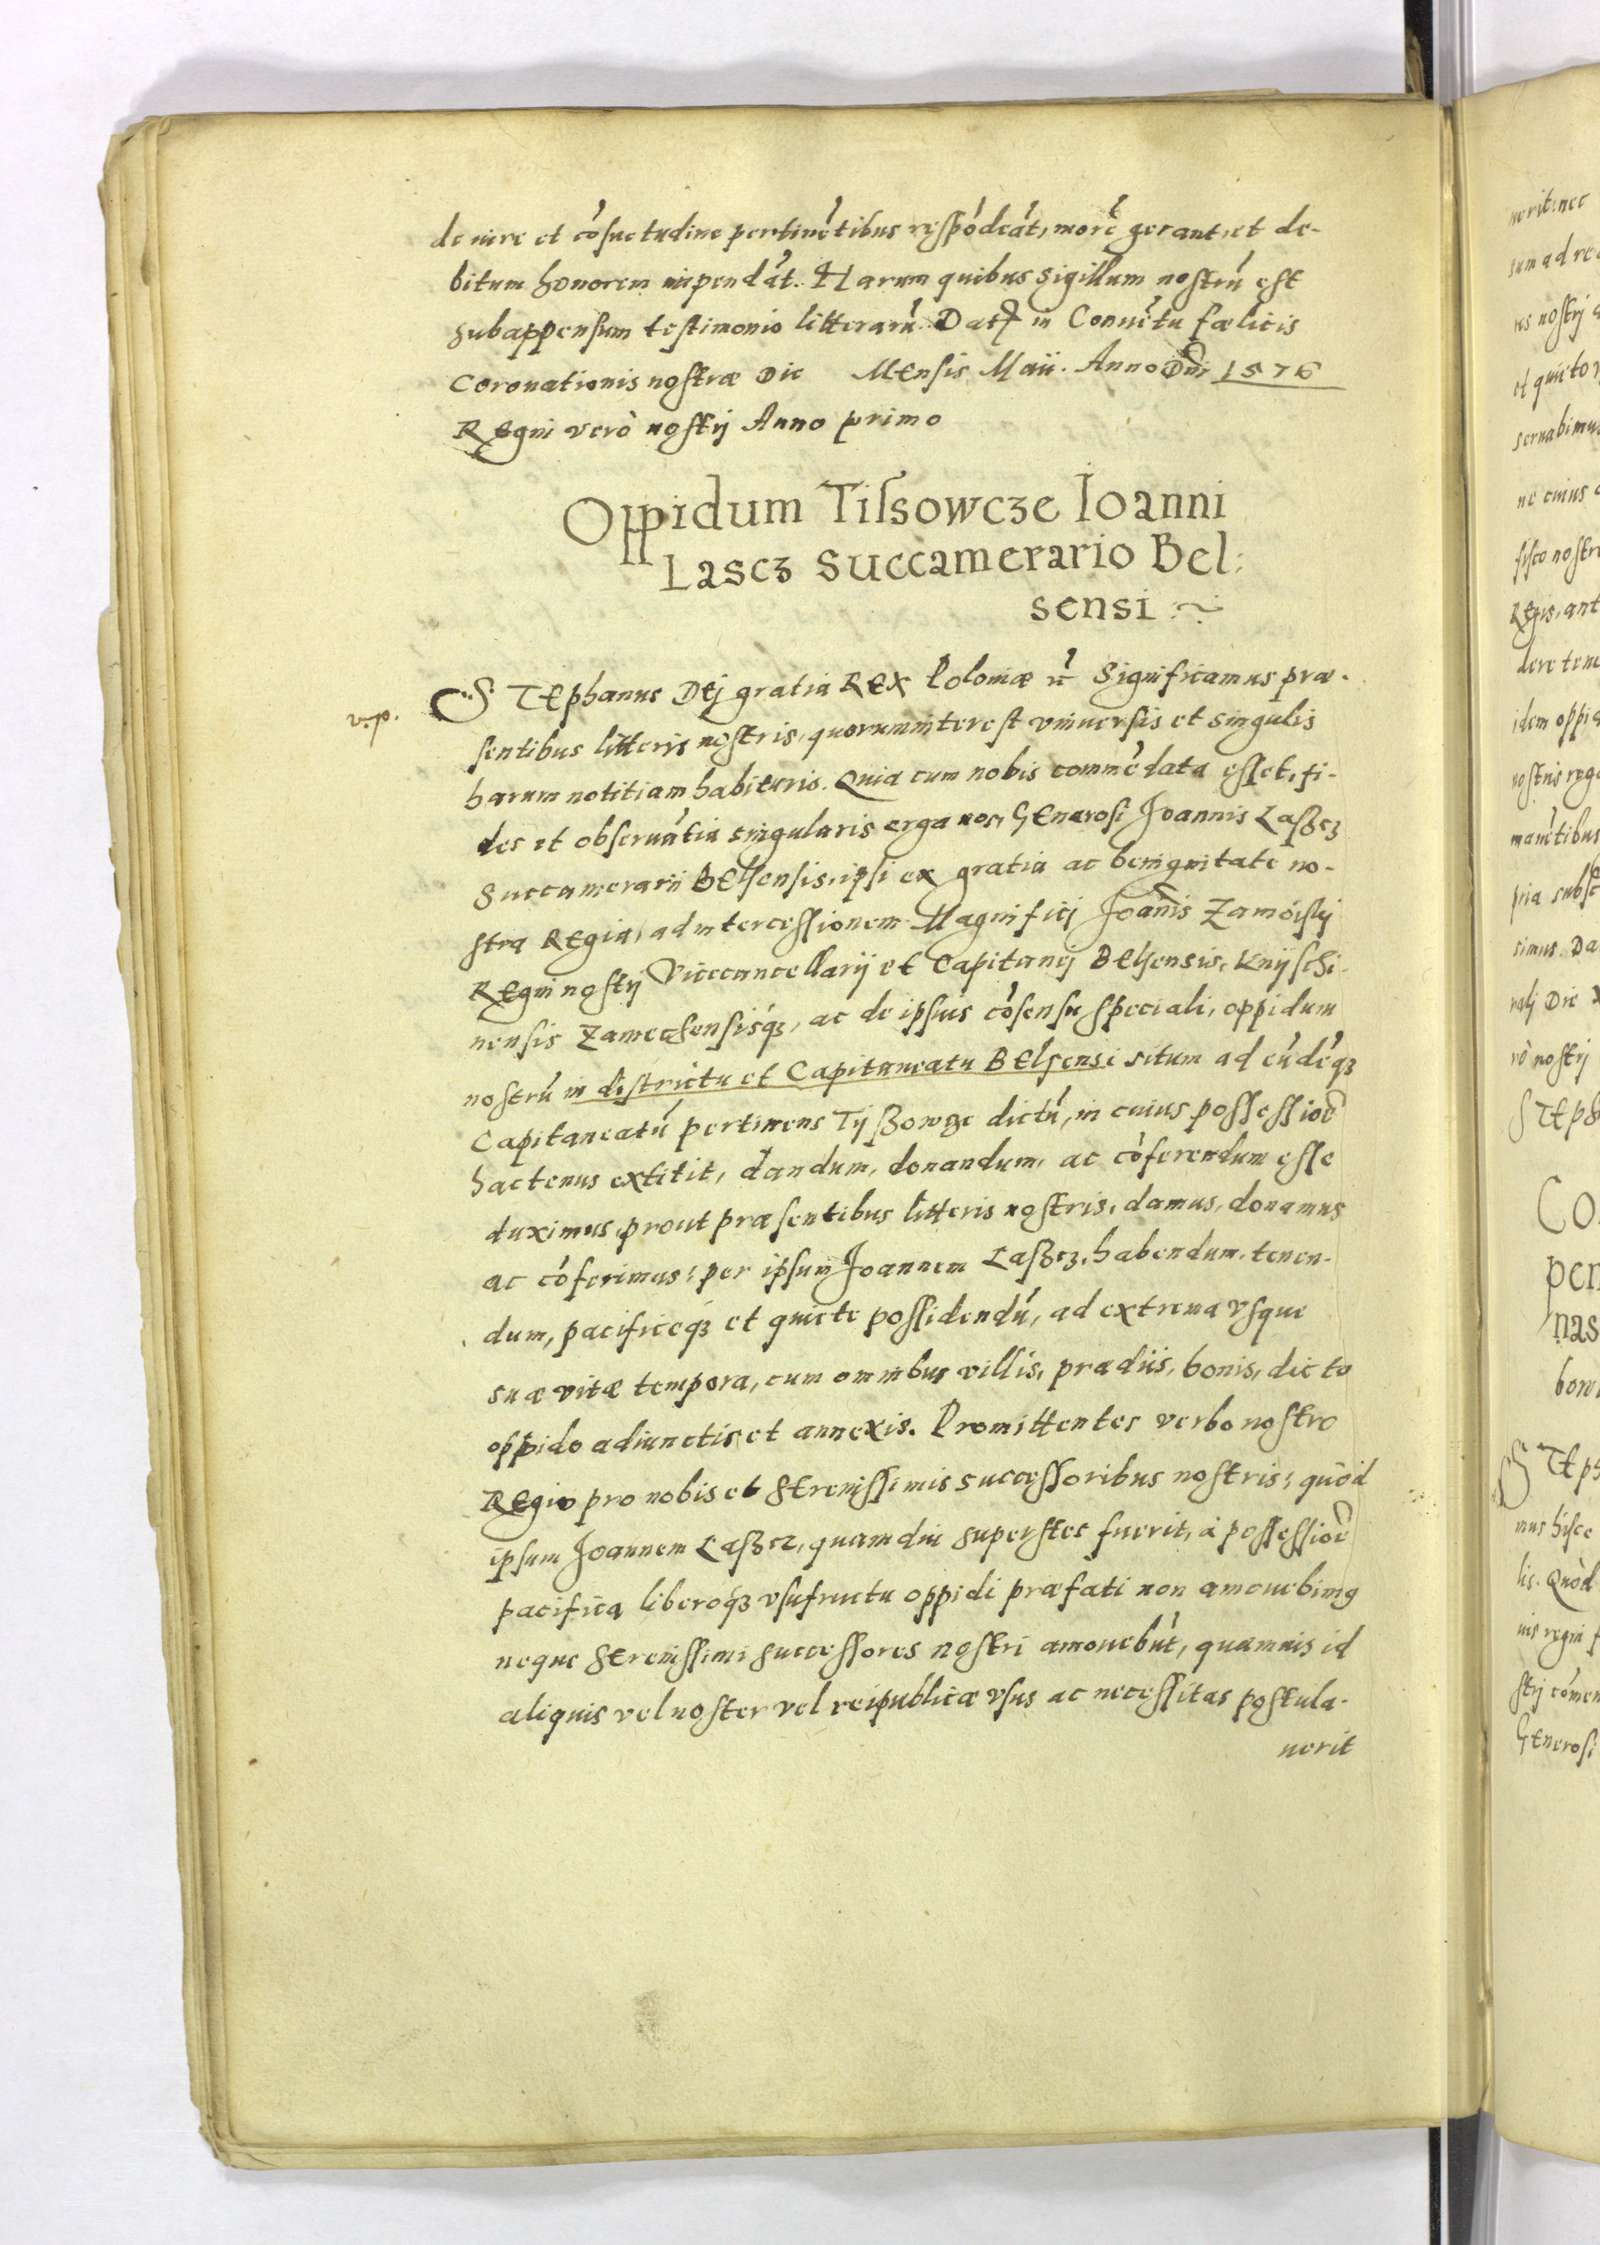 de iure et cõsuetudine pertinẽtibus respõdeãt, morẽ gerant, et de-
bitum honorem inpendãt. Harum quibus sigillum nostrũ est
subappensum testimonio litterarũ. Dat in Conuẽtu fælicis
Coronationis nostræ Die Mensis Maii. Anno Dñi 1576
Regni verò nostrj Anno primo
Oppidum Tilsowcze Ioanni
Lascz Succamerario Bel:
sensi
Stephanus Dej gratia Rex Poloniæ ẽt Significamus præ-
sentibus litteris nostris, quorum interest vniuersis et singulis
harum notitiam habituris. Quia cum nobis commẽdata esset, fi-
des et obseruãtia singularis erga nos, Generosi Joannis Laßcz
Succamerarii Belsensis, ipsi ex gratia ac benignitate no-
stra Regia, ad intercessionem Magnificj Joañis Zamóiskj
Regni nostrj Vicecancellarij et Capitanej Belsensis, Knijschi-
nensis Zamechensisq3, ac de ipsius cõsensu speciali, oppidum
nostrũ in districtu et Capitaneatu Belsensi situm ad eũdẽq3
Capitaneatũ pertinens Tijßowcze dictũ, in cuius possessioẽ
hactenus extitit, dandum, donandum, ac cõferendum esse
duximus, prout præsentibus litteris nostris, damus, donamus
ac cõferimus: per ipsum Joannem Laßcz, habendum, tenen-
dum, pacificeq3 et quiete possidendũ, ad extrema vsque
suæ vitæ tempora, cum omnibus villis, prædiis, bonis, dicto
oppido adiunctis et annexis. Promittentes verbo nostro
Regio pro nobis et Serenissimis successoribus nostris; quòd
ipsum Joannem Laßcz, quamdiu superstes fuerit, à possessioẽ
pacifica liberoq3 vsufructu oppidi præfati non amouebimꝰ
neque Serenissimi successores nostri amouebũt, quamuis id
aliquis vel noster vel reipublicæ vsus ac necessitas postula-
uerit